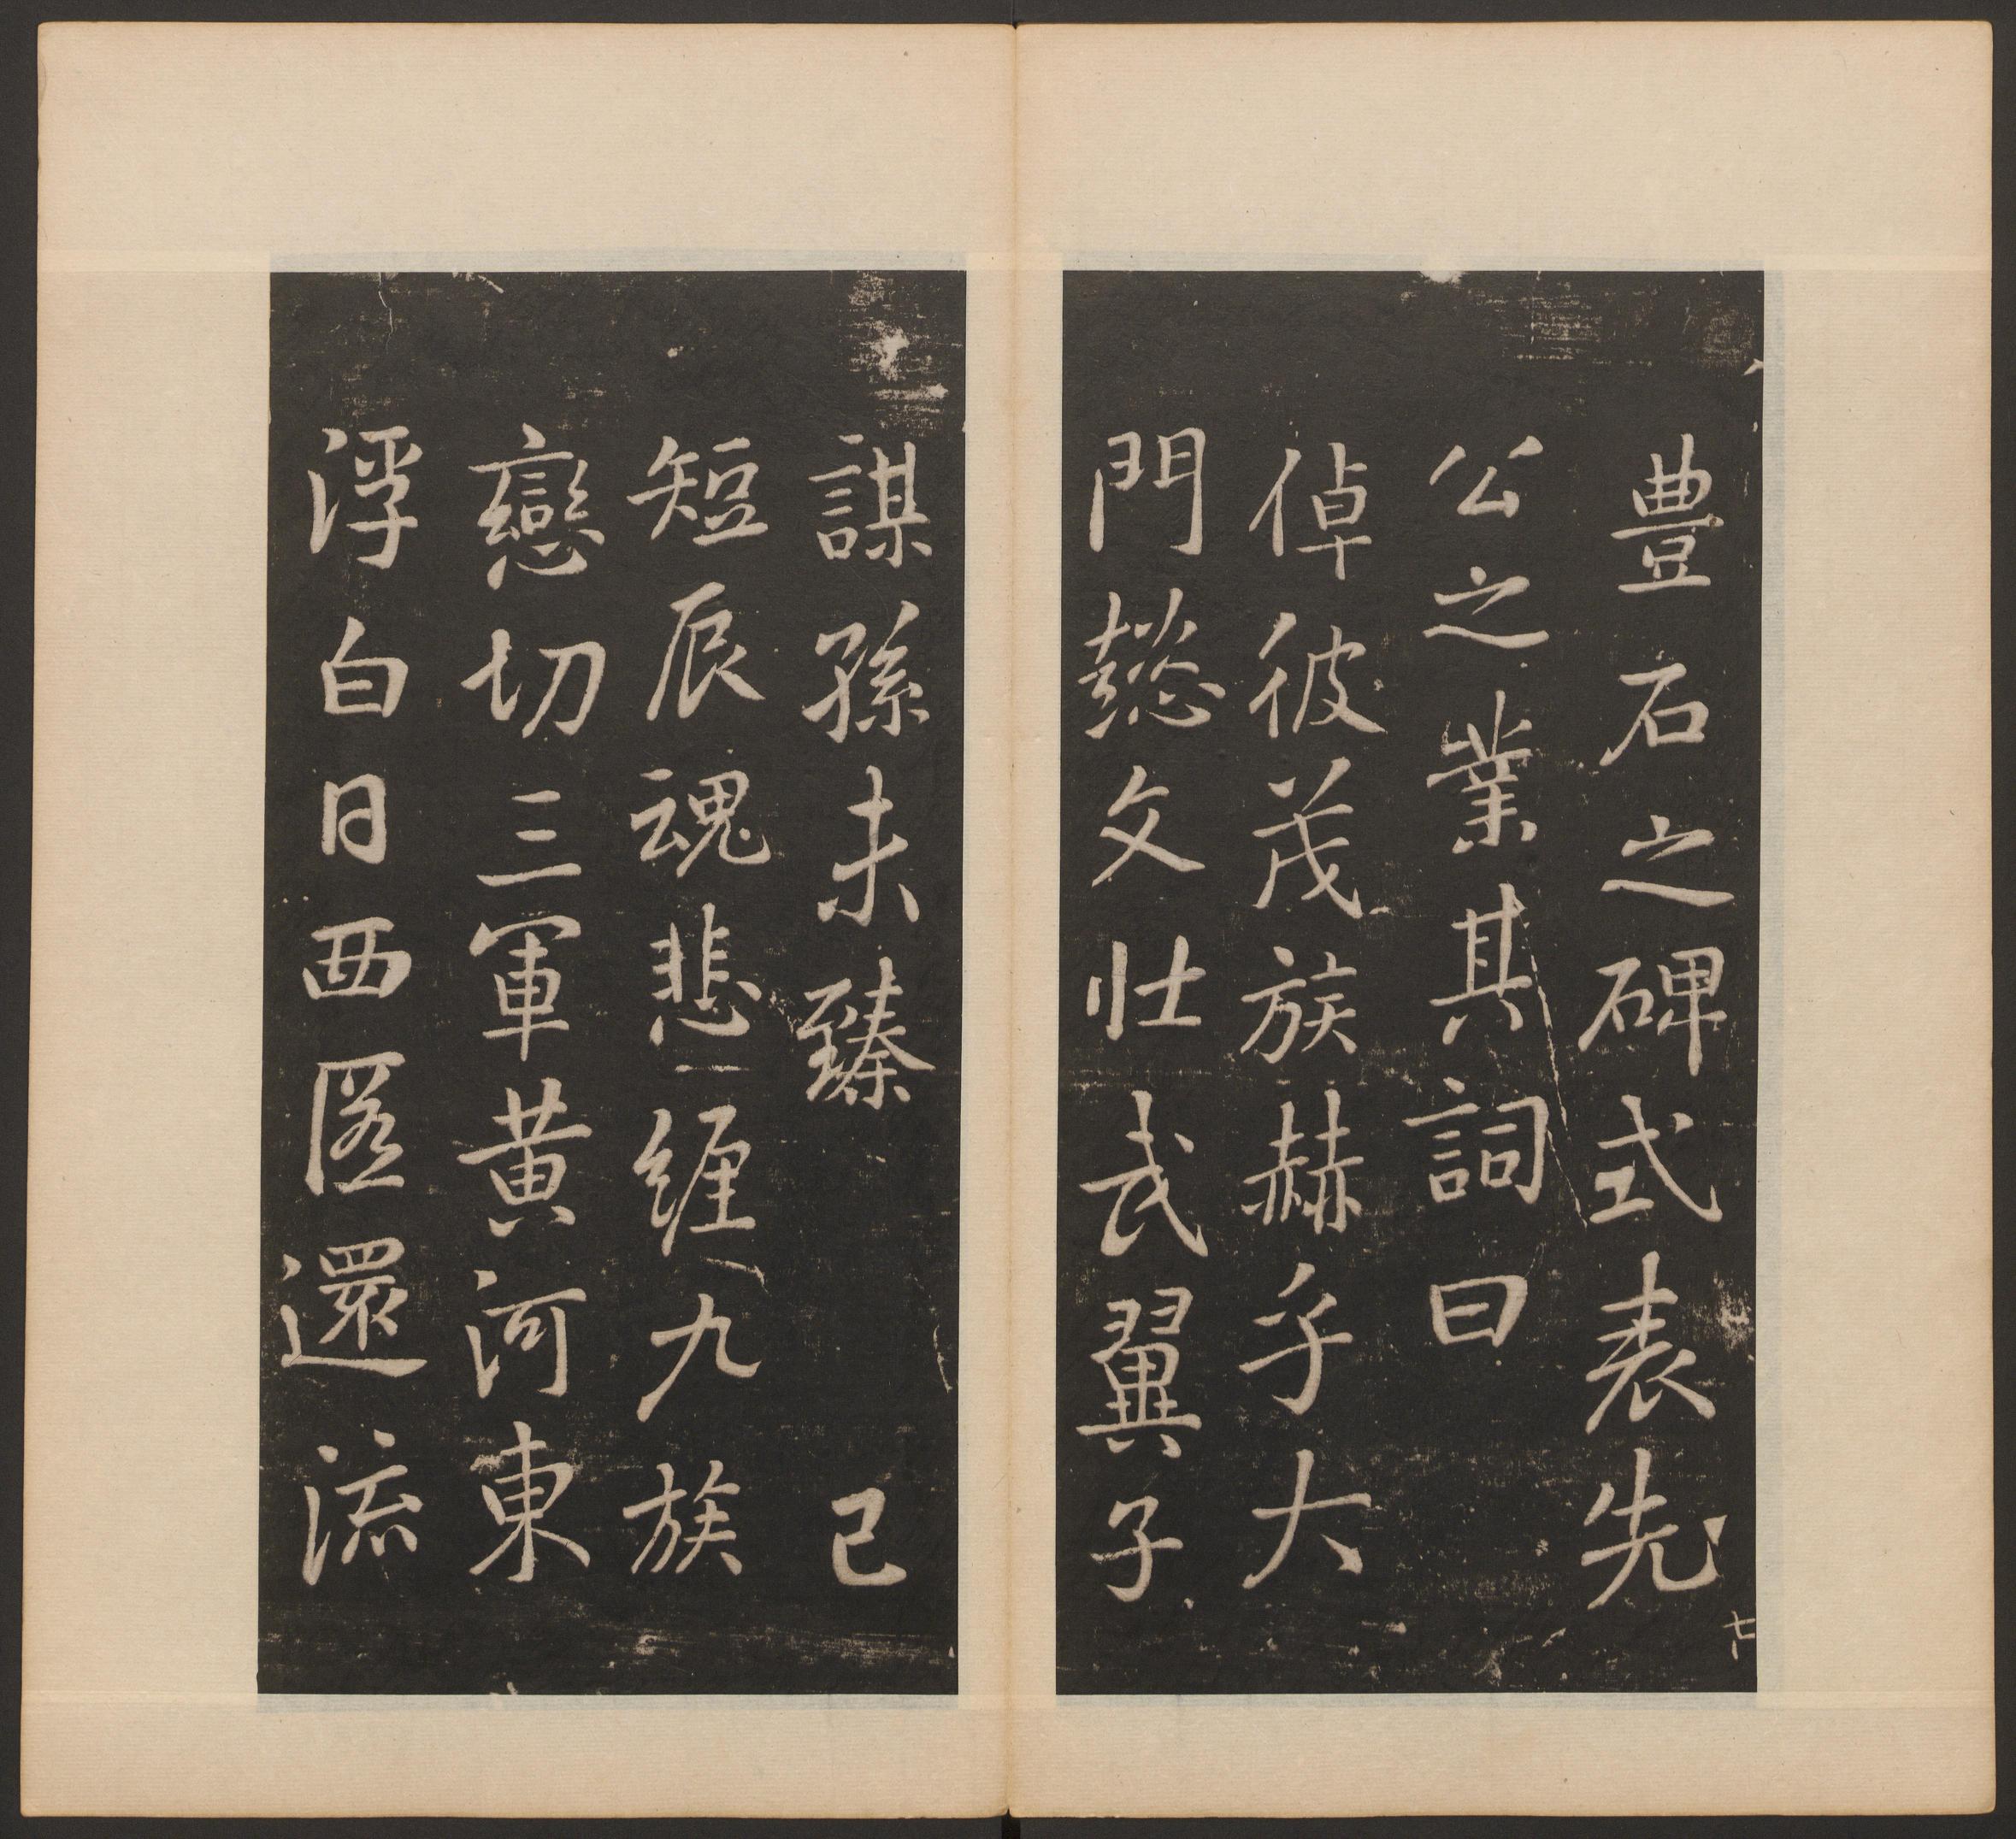 豊石之碑式表先
公之業其詞曰
倬彼茂族赫乎大
門懿文壯武翼子
謀孫未臻 已
短辰魂悲纏九族
戀切三軍黃河東
浮白日西匿還流
七